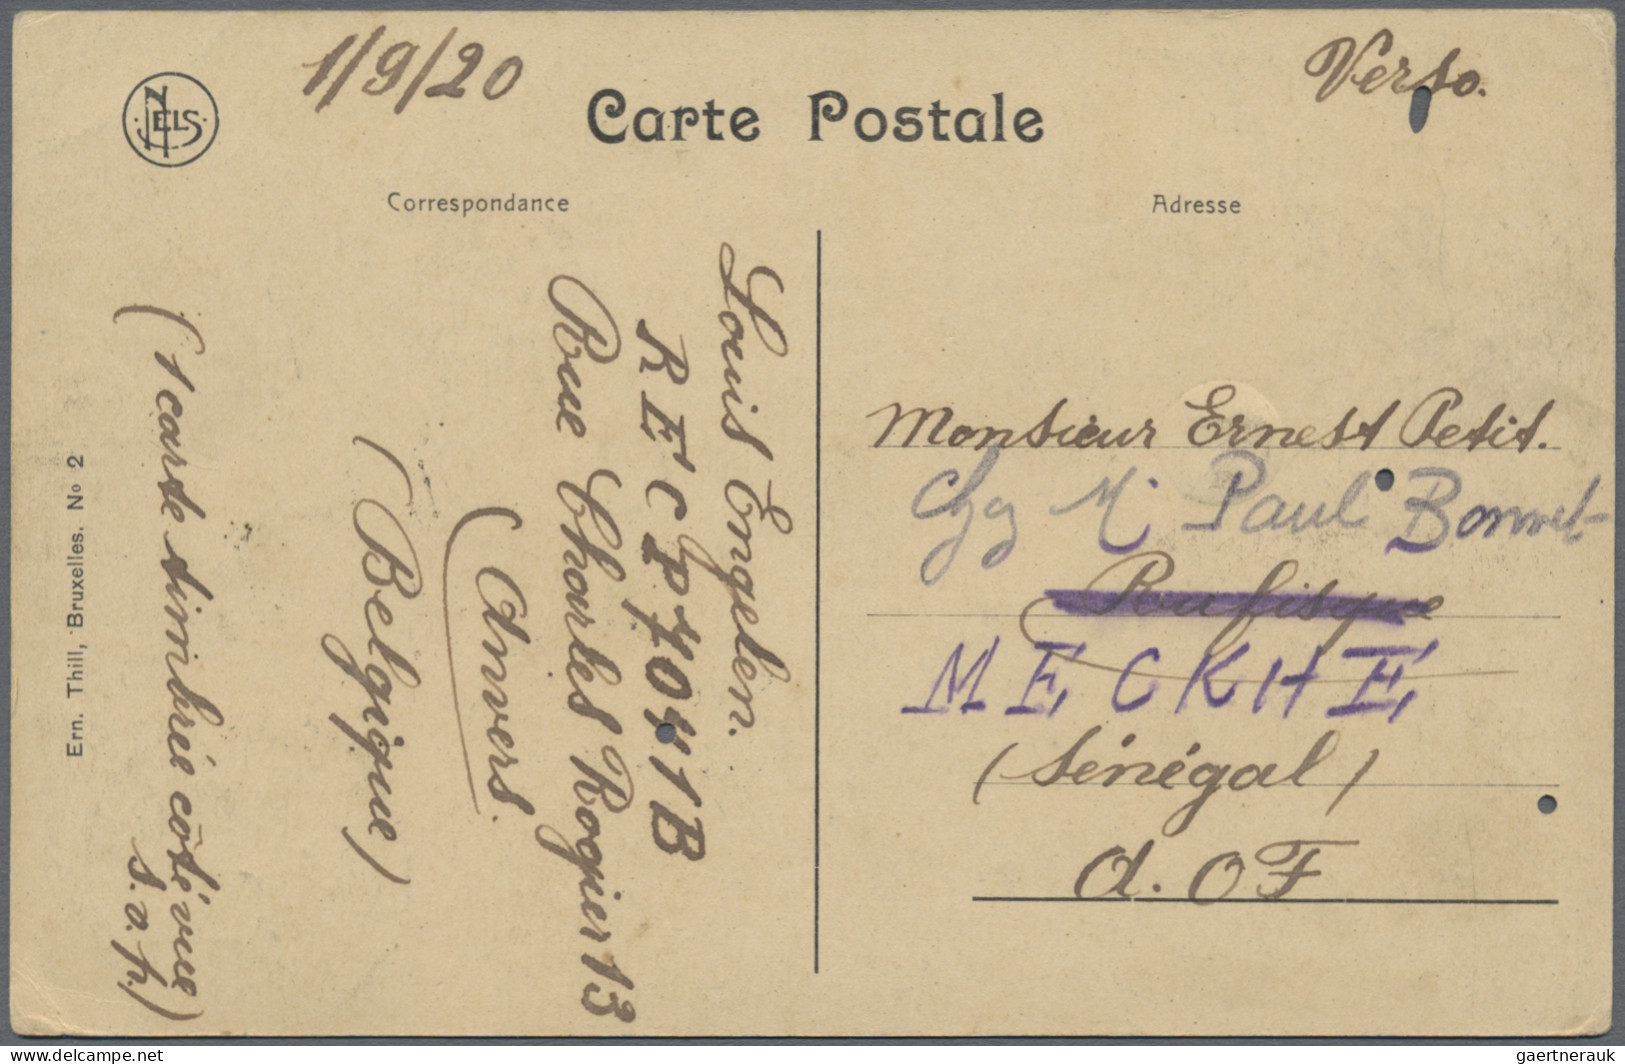 1/9/20
Verso.
NELS
Carte Postale
Correspondance
Adresse
Louis Engelen.
Rue Charles Rogier 13
(Anvers.
(Belgique)
(1 carte timbrée côté vue
s.v.p.)
Ern. Thill, Bruxelles. No 2
Monsieur Ernest Petit.
Chez M. Paul Bonnet
Rufisque
MECKHÉ
(Sénégal)
A.OF
gaertnerauk